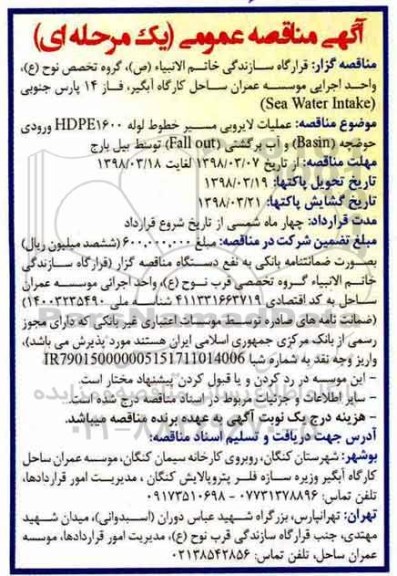 آگهی مناقصه عمومی (یک مرحله ای)
مناقصه گزار: قرارگاه سازندگی خاتم الانبیاء (ص)، گروه تخصص نوح (ع)،
واحد اجرایی موسسه عمران ساحل کارگاه آبگیر، فاز ۱۴ پارس جنوبی
(Sea Water Intake)
موضوع مناقصه: عملیات لایروبی مسیر خطوط لوله HDPE۱۶۰۰ ورودی
حوضچه (Basin) و آب برگشتی (Fall out) توسط بیل بارج
مهلت مناقصه: از تاریخ ۱۳۹۸/۰۳/۰۷ لغایت ۱۳۹۸/۰۳/۱۸
تاریخ تحویل پاکتها: ۱۳۹۸/۰۳/۱۹
تاریخ گشایش پاکتها: ۱۳۹۸/۰۳/۲۱
مدت قرارداد: چهار ماه شمسی از تاریخ شروع قرارداد
مبلغ تضمین شرکت در مناقصه: مبلغ ۶۰۰،۰۰۰،۰۰۰ (ششصد میلیون ریال)
بصورت ضمانتنامه بانکی به نفع دستگاه مناقصه گزار (قرارگاه سازندگی
خاتم الانبیاء گروه تخصصی قرب نوح (ع)، واحد اجرائی موسسه عمران
ساحل به کد اقتصادی ۴۱۱۳۳۱۶۶۳۷۱۹ شناسه ملی ۱۴۰۰۳۲۳۵۴۹۰)
(ضمانت نامه های صادره توسط موسسات اعتباری غیر بانکی که دارای مجوز
رسمی از بانک مرکزی جمهوری اسلامی ایران هستند مورد پذیرش می باشد)،
واریز وجه نقد به شماره شبا IR790150000005151711014006
- این موسسه در رد کردن و یا قبول کردن پیشنهاد مختار است.
- سایر اطلاعات و جزئیات مربوط در اسناد مناقصه درج شده است.
- هزینه درج یک نوبت آگهی به عهده برنده مناقصه میباشد.
آدرس جهت دریافت و تسلیم اسناد مناقصه:
بوشهر: شهرستان کنگان، روبروی کارخانه سیمان کنگان، موسسه عمران ساحل
کارگاه آبگیر وزیره سازه قلز پتروپالایش کنگان ، مدیریت امور قراردادها،
تلفن تماس: ۰۷۷۳۱۳۷۸۸۹۶ - ۰۹۱۷۳۵۱۰۶۹۸
تهران: تهرانپارس، بزرگراه شهید عباس دوران (اسبدوانی)، میدان شهید
مهتدی، جنب قرارگاه سازندگی قرب نوح (ع)، مدیریت امور قراردادها، موسسه
عمران ساحل، تلفن تماس: ۰۲۱۳۸۵۴۲۸۵۶